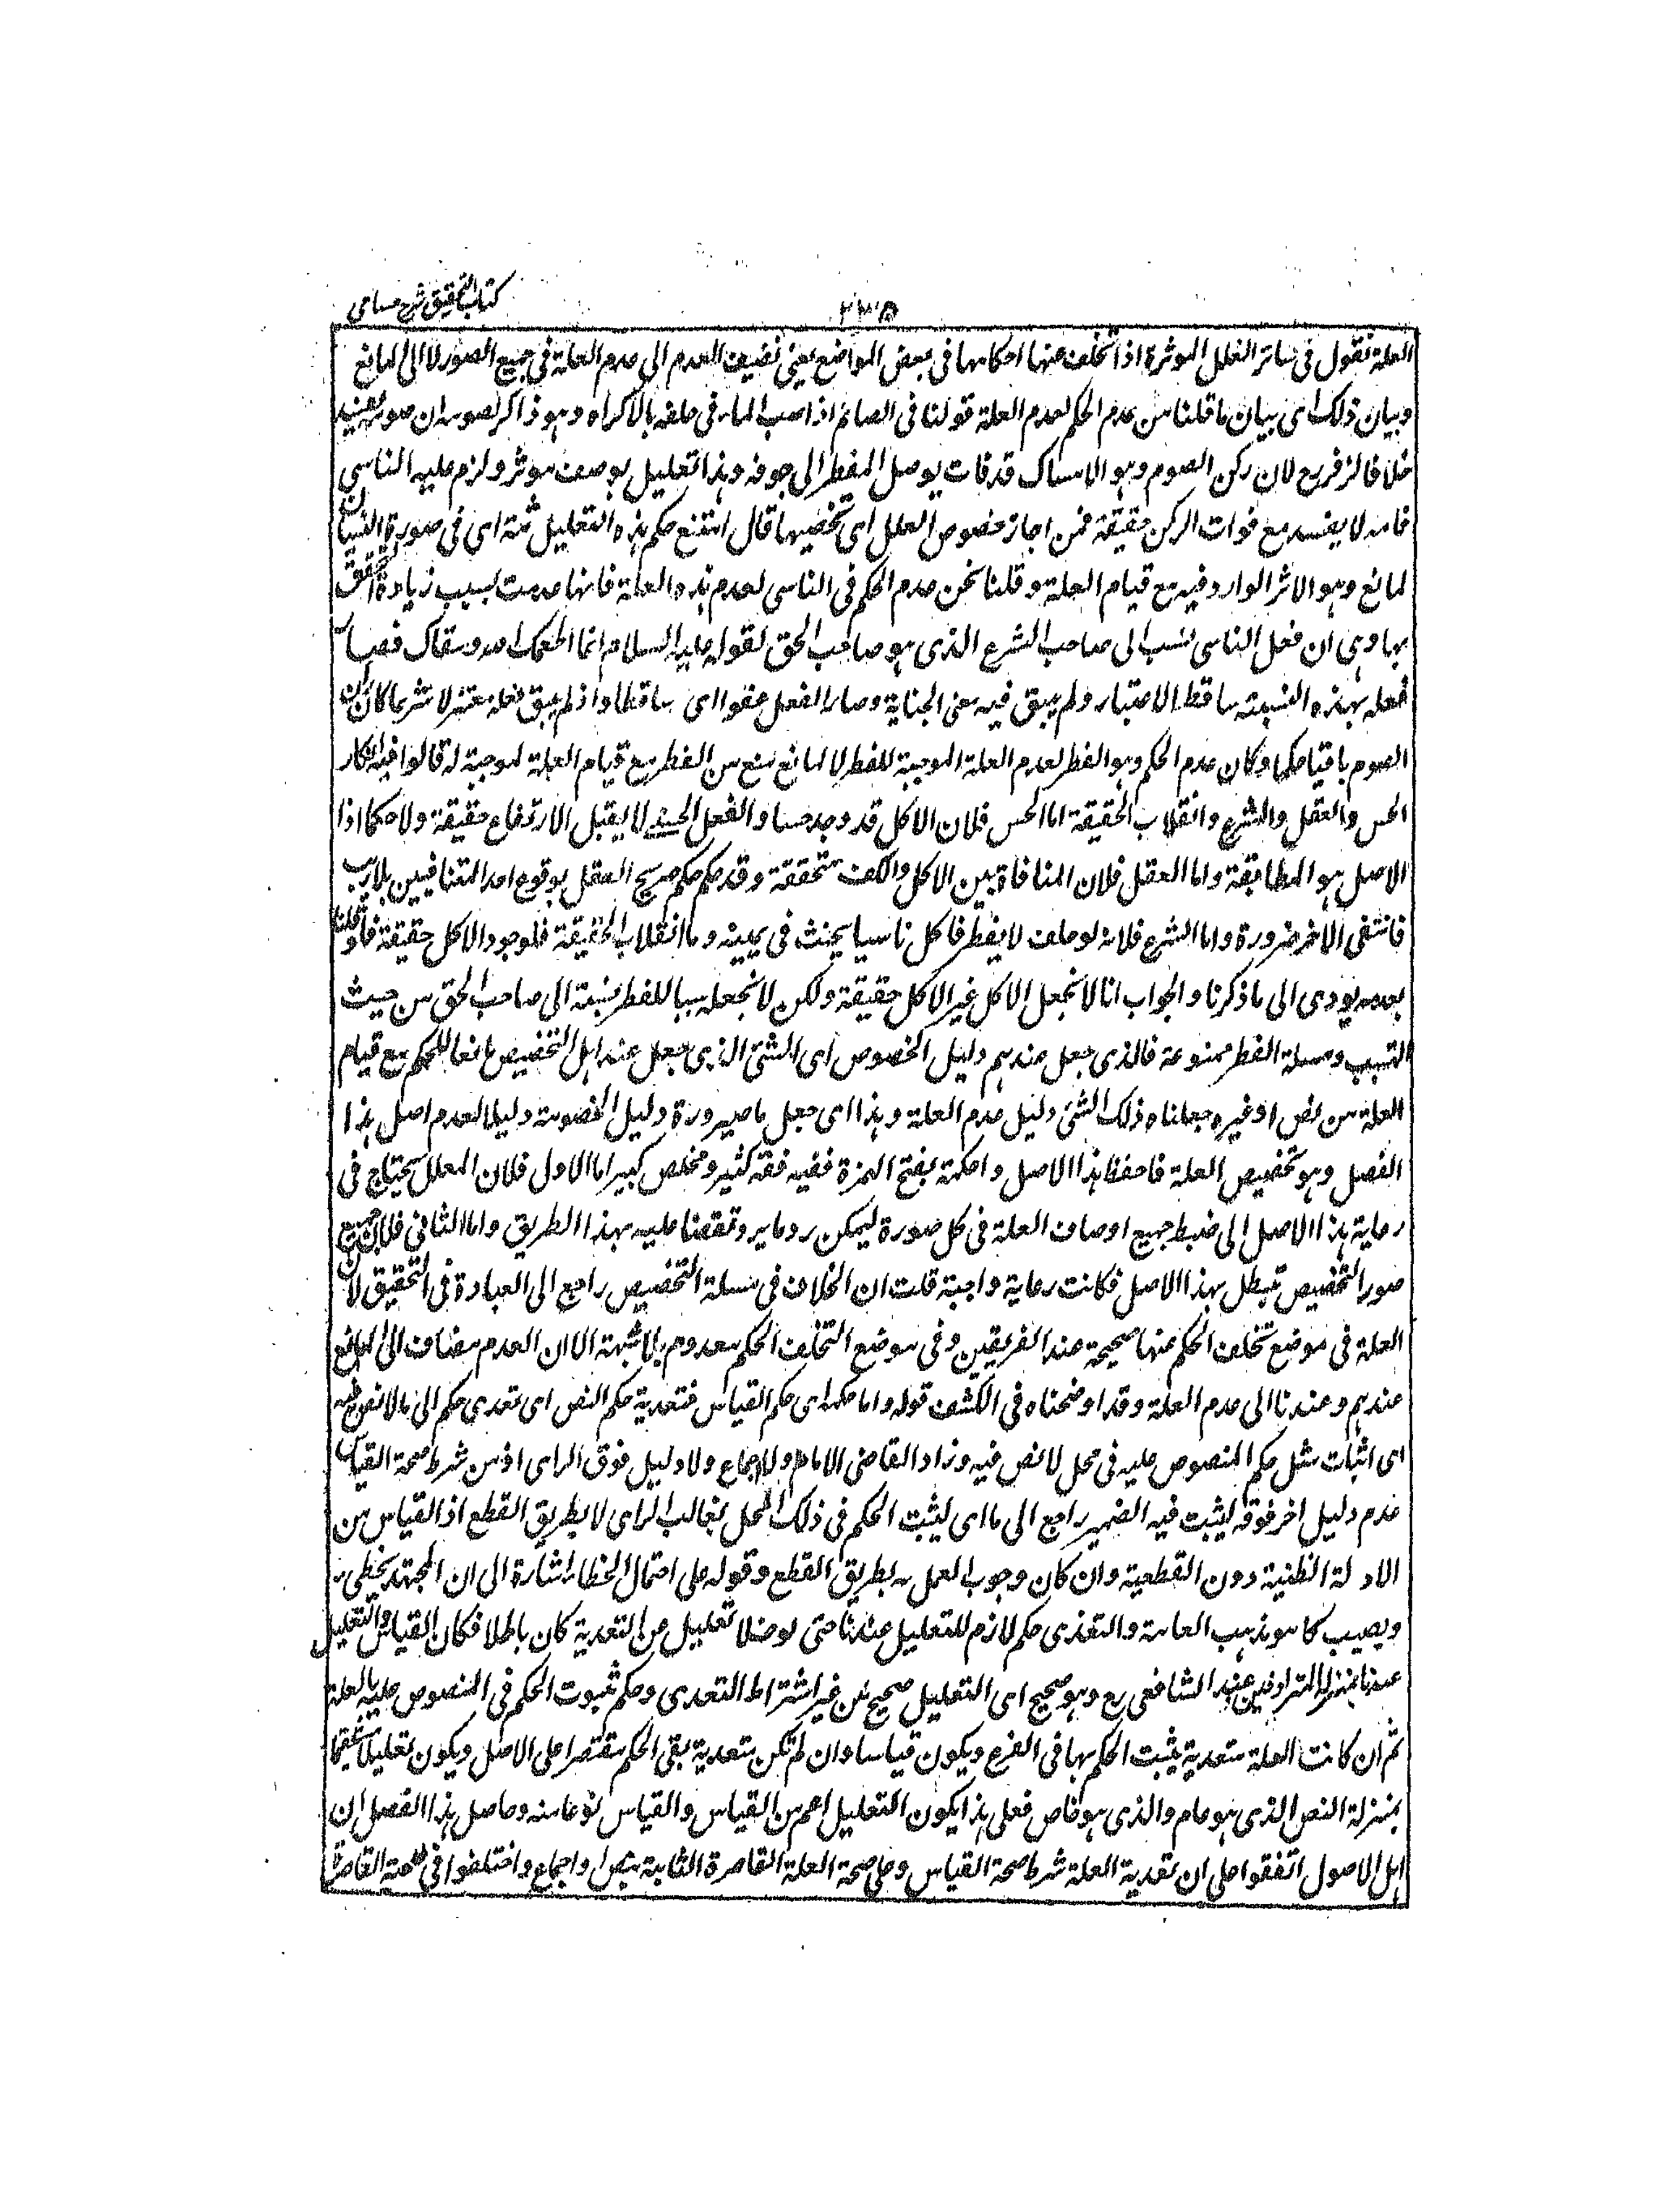 كتاب التحقيق شرح حسامى
٢٣٥
العلة نقول فى سائر العلل الموثرة اذا تخلف عنها احكامها فى بعض المواضع يعنى نضيف العدم الى عدم العلة فى جميع الصور لا الى المانع
وبيان ذلك اى بيان ما قلنا من عدم الحكم لعدم العلة قولنا فى الصائم اذا صب الماء فى حلقه بالاكراه وهو ذاكر لصومه ان صومه يفسد
خلافا لزفر رح لان ركن الصوم وهو الامساك قد فات بوصول المفطر الى جوفه وهذا تعليل بوصف موثر ولزم عليه الناسى
فانه لا يفسد مع فوات الركن حقيقة فمن اجاز خصوص العلل اى تخصيصها قال امتنع حكم هذه التعليل ثمة اى فى صورة النسيان
لمانع وهو الاثر الوارد فيه مع قيام العلة وقلنا نحن عدم الحكم فى الناسى لعدم هذه العلة فانها عدمت بسبب زيادة
بها وهى ان فعل الناسى نسب الى صاحب الشرع الذى هو صاحب الحق لقوله عليه السلام انما اطعمك الله وسقاك فصار
فعله بهذه النسبته ساقط الاعتبار ولم يبق فيه معنى الجناية وصار الفعل عفوا اى ساقطا واذ لم يبق فعله معتبرا شرعا كان ركن
الصوم باقيا حكما وكان عدم الحكم وهو الفطر لعدم العلة الموجبة للفطر لا لمانع منع من الفطر مع قيام العلة الموجبة له قالوا فيه انكار
الحس والعقل والشرع وانقلاب الحقيقة اما الحس فلان الاكل قد وجد حسا والفعل الحسى لا يقبل الارتفاع حقيقة ولا حكما اذا
الاصل هو المطابقة واما العقل فلان المنافاة بين الاكل والكف متحققة وقد حكم حكم صريح العقل بوقوع احد المتنافيين بلا ريب
فانتفى الاخر ضرورة واما الشرع فلانه لو حلف لا يفطر فاكل ناسيا يحنث فى يمينه وما انقلاب الحقيقة فلوجود الاكل حقيقة فلو قلنا
بعدمه يودى الى ما ذكرنا والجواب انا لا نجعل الاكل غير الاكل حقيقة ولكن لا نجعله سببا للفطر بنسبته الى صاحب الحق من حيث
التسبب ومسلة الفطر ممنوعة فالذى جعل عندهم دليل الخصوص اى الشئ الذى جعل عند اهل التخصيص مانعا للحكم مع قيام
العلة من نص او غيره جعلناه ذلك الشئ دليل عدم العلة وهذا اى جعل ما صيروره دليل الخصوصة دليل العدم اصل هذا
الفصل وهو تخصيص العلة فاحفظ هذا الاصل واحكمه بفتح الهمزة ففيه فقه كثير ومخلص كبير اما الاول فلان المعلل يحتاج فى
رعاية هذا الاصل الى ضبط جميع اوصاف العلة فى كل صورة ليمكن رد ما يرد نقضنا عليه بهذا الطريق واما الثانى فلان جميع
صور التخصيص تبطل بهذا الاصل فكانت رعاية واجبة قلت ان الخلاف فى مسلة التخصيص راجع الى العبادة فى التحقيق لان
العلة فى موضع تخلف الحكم عنها صحيحة عند الفريقين وفى موضع التخلف الحكم معدوم بلا شبهة الا ان العدم مضاف الى المانع
عندهم وعندنا الى عدم العلة وقد اوضحناه فى الكشف قوله واما حكمه اى حكم القياس فتعدية حكم النص اى تعدى حكم الى ما لا نص فيه
اى اثبات مثل حكم المنصوص عليه فى محل لا نص فيه وزاد القاضى الامام ولا اجماع ولا دليل فوق الراى اذ من شرط صحة القياس
عدم دليل اخر فوقه ليثبت فيه الضمير راجع الى ما اى ليثبت الحكم فى ذلك المحل بغالب الراى لا بطريق القطع اذ القياس من
الادلة الظنية دون القطعية وان كان وجوب العمل به بطريق القطع وقوله على احتمال الخطاء اشارة الى ان المجتهد يخطى
ويصيب كما هو مذهب العامة والتعدى حكم لازم للتعليل عندنا حتى لو خلا تعليل عن التعدية كان باطلا فكان القياس والتعليل
عندنا بمنزلة المترادفين عند الشافعى رح وهو صحيح اى التعليل صحيح من غير اشتراط التعدى وحكم ثبوت الحكم فى المنصوص عليه بالعلة
ثم ان كانت العلة متعدية يثبت الحكم بها فى الفرع ويكون قياسا وان لم تكن متعدية بقى الحكم مقتصرا على الاصل ويكون تعليلا مستقيما
بمنزلة النص الذى هو عام والذى هو خاص فعلى هذا يكون التعليل اعم من القياس والقياس نوعا منه وحاصل هذا الفصل ان
اهل الاصول اتفقوا على ان تعدية العلة شرط صحة القياس وعلى صحة العلة القاصرة الثابتة بنص او اجماع واختلفوا فى صحة القاصرة